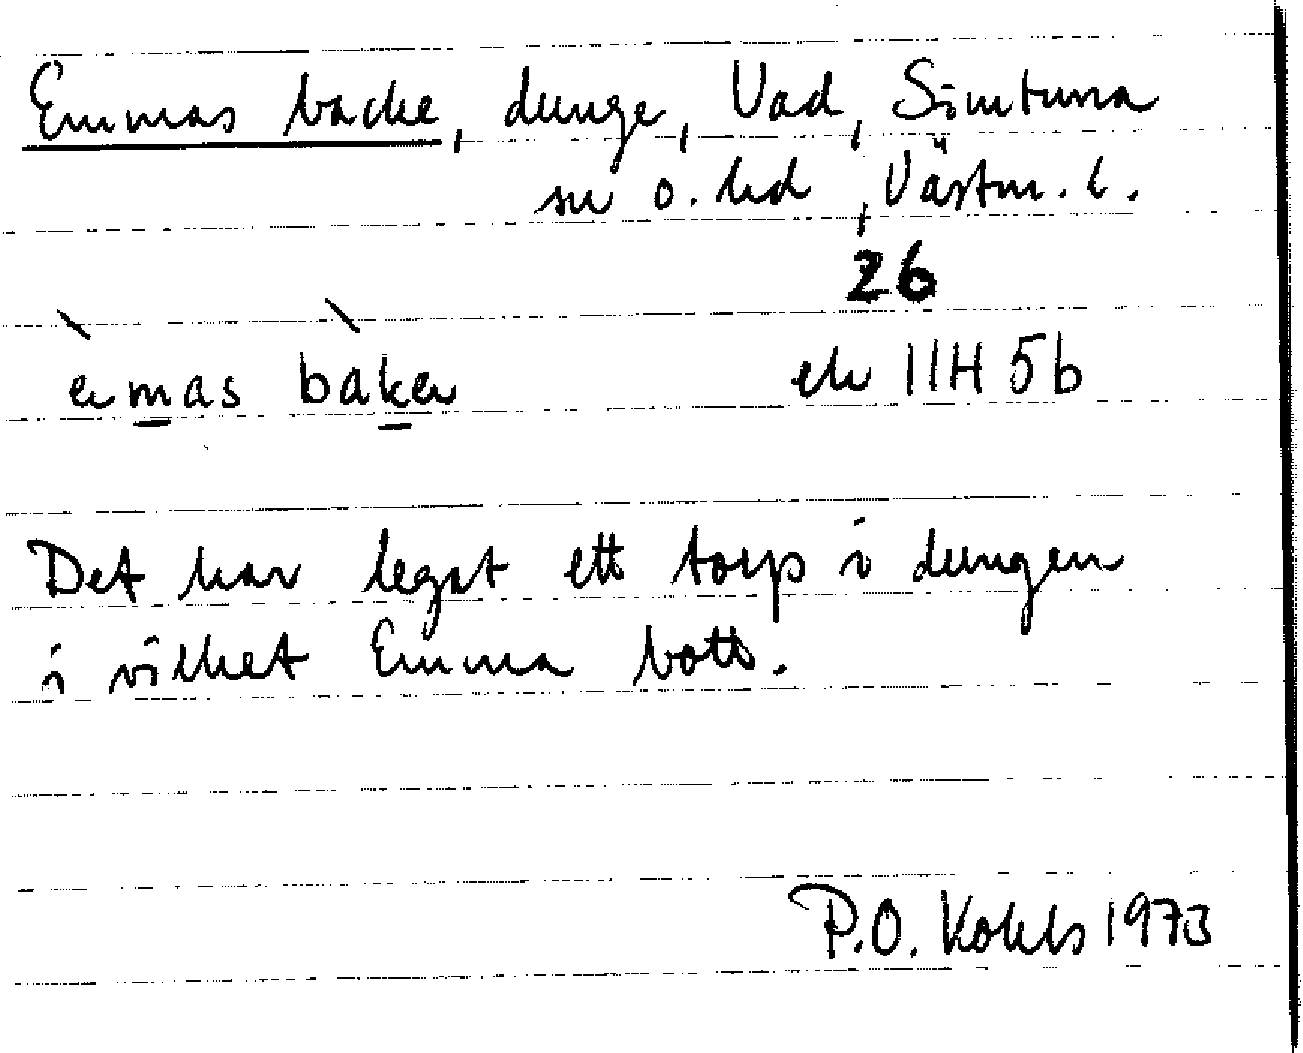 Emmas backe, dunge, Vad, Simtuna
sn o. hd, Västm. l.
26
èmas bàkev
ek 11H 5b
Det har legat ett torp i dungen
i vilket Emma bott.
P.O. 1973